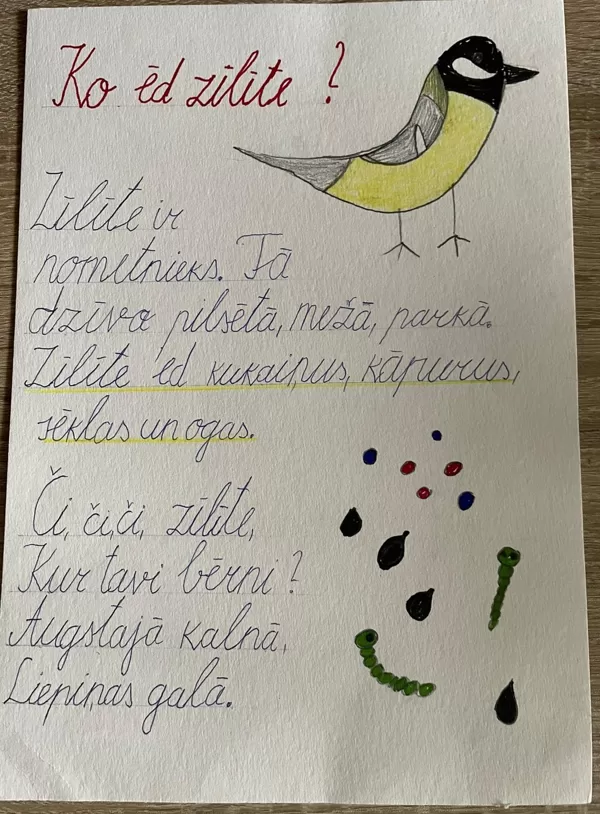 Ko ēd zīlīte ?
Zīlīte ir
nometnieks. Tā
dzīvo pilsētā, mežā, parkā.
Zīlīte ēd kukaiņus, kāpurus,
sēklas un ogas.
Či, či,či, zīlīte,
Kur tavi bērni ?
Augstajā kalnā,
Liepiņas galā.